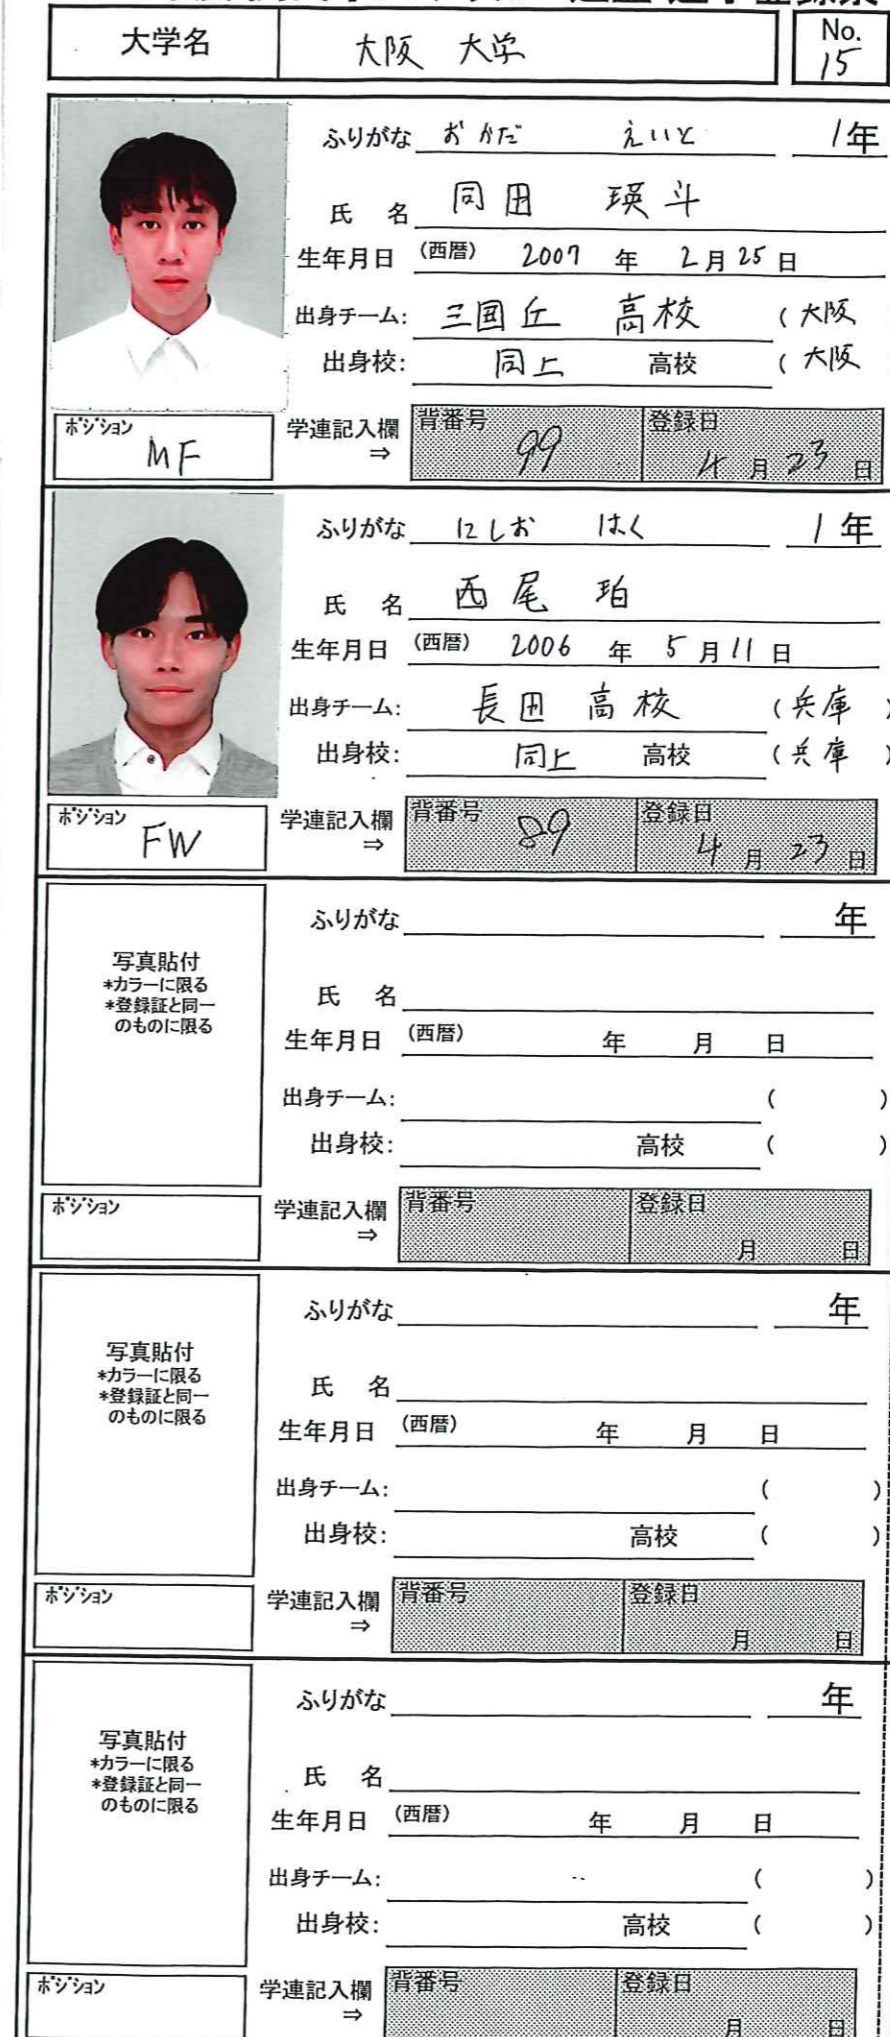 選手登録票
大学名 大阪 大学 No. 15
ふりがな おかだ えいと 1年
氏 名 岡田 瑛斗
生年月日 (西暦) 2007 年 2月25日
出身チーム: 三国丘 高校 (大阪
出身校: 同上 高校 (大阪
ポジション MF 学連記入欄⇒ 背番号 99 登録日 4月23日
ふりがな にしお はく 1年
氏 名 西尾 珀
生年月日 (西暦) 2006 年 5月11日
出身チーム: 長田 高校 (兵庫 )
出身校: 同上 高校 (兵庫 )
ポジション FW 学連記入欄⇒ 背番号 89 登録日 4月23日
写真貼付
*カラーに限る
*登録証と同一
のものに限る
ふりがな 年
氏 名
生年月日 (西暦) 年 月 日
出身チーム: ( )
出身校: 高校 ( )
ポジション 学連記入欄⇒ 背番号 登録日 月 日
写真貼付
*カラーに限る
*登録証と同一
のものに限る
ふりがな 年
氏 名
生年月日 (西暦) 年 月 日
出身チーム: ( )
出身校: 高校 ( )
ポジション 学連記入欄⇒ 背番号 登録日 月 日
写真貼付
*カラーに限る
*登録証と同一
のものに限る
ふりがな 年
氏 名
生年月日 (西暦) 年 月 日
出身チーム: ( )
出身校: 高校 ( )
ポジション 学連記入欄⇒ 背番号 登録日 月 日